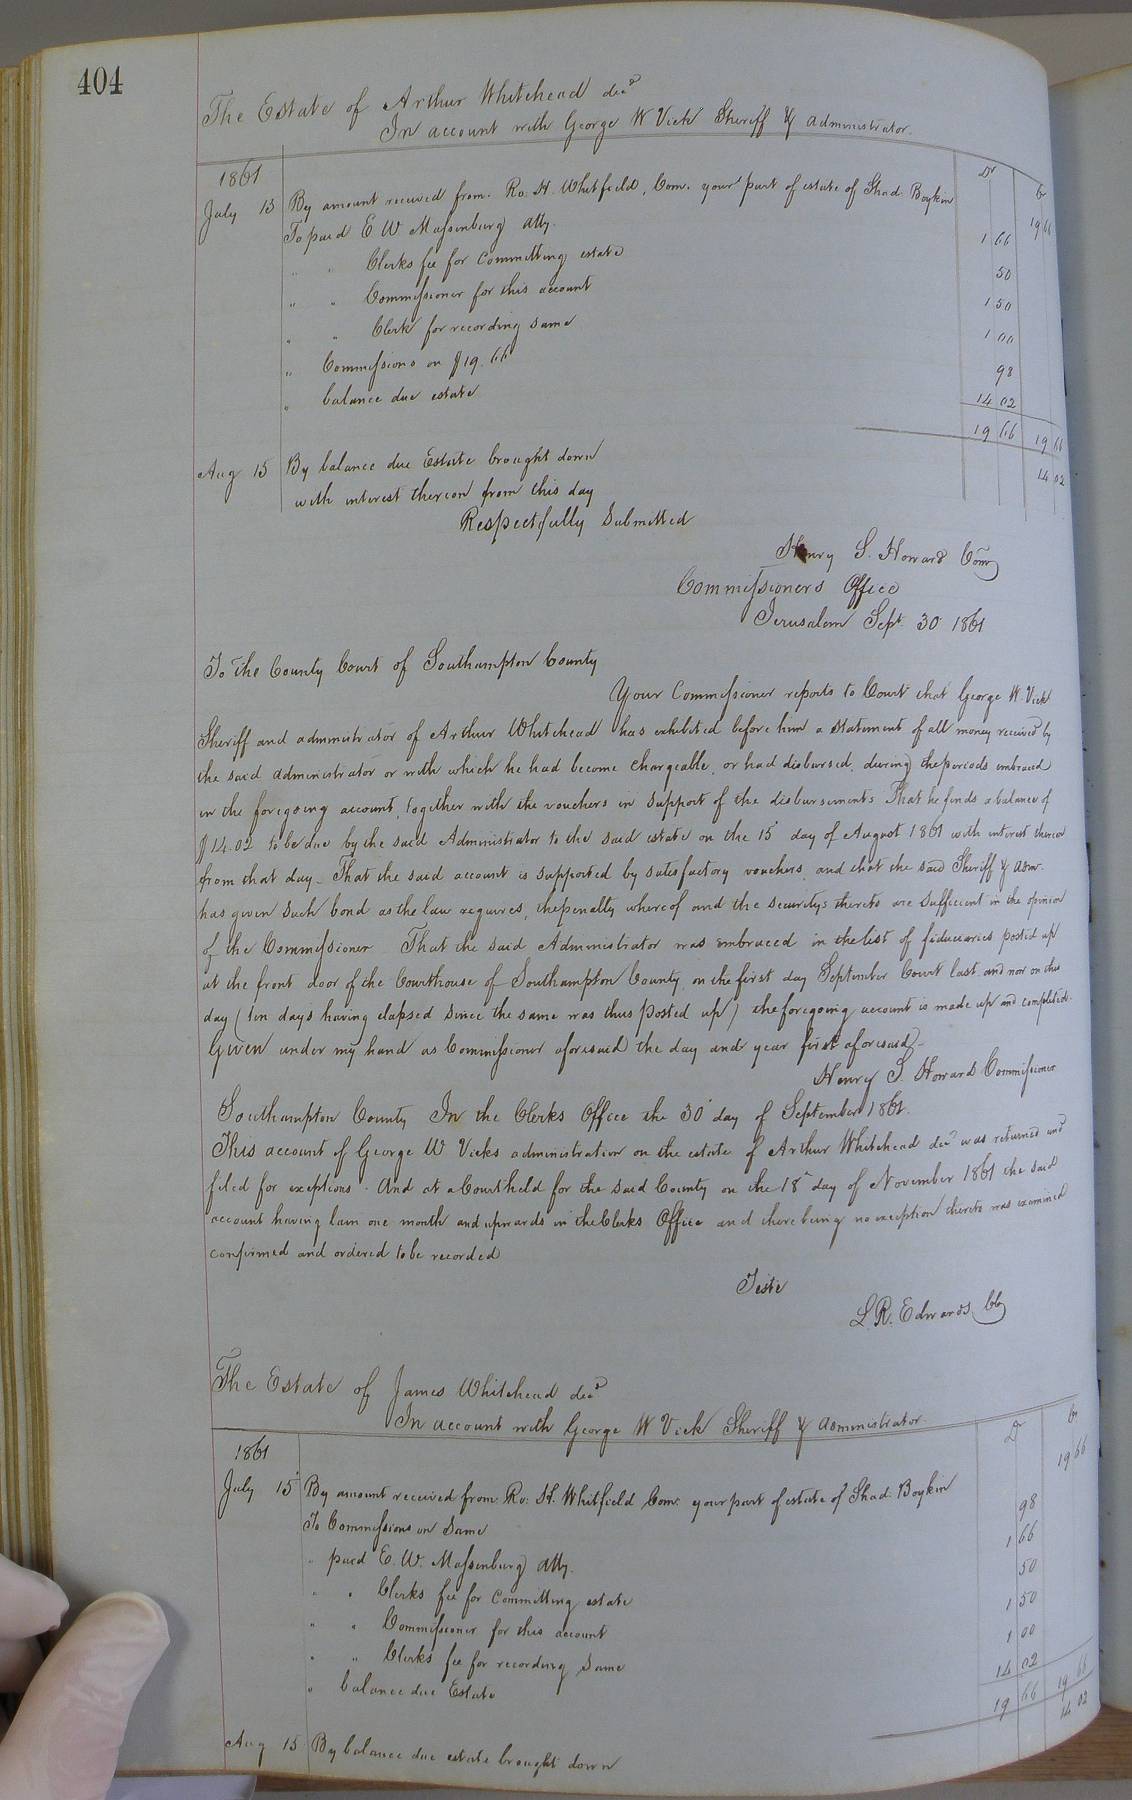 404
The Estate of Arthur Whitehead decd
In account with George W Vick Sheriff & administrator.
Dr Cr
1861
July 15 By amount received from Ro. H. Whitfield, Com. your part of estate of Shad. Boykin 19 66
To paid E W Massenburg atty. 1 66
" " Clerks fee for Committing estate 50
" " Commissioner for this account 1 50
" " Clerk for recording same 1 00
" Commissions on $19.66 98
" balance due estate 14 02
19 66 19 66
Aug 15 By balance due Estate brought down 14 02
with interest thereon from this day
Respectfully Submitted
Henry S. Howard Comr
Commissioners Office
Jerusalem Sept. 30 1861
To the County Court of Southampton County
Your Commissioner reports to Court that George W. Vick
Sheriff and administrator of Arthur Whitehead has exhibited before him a statement of all money received by
the said administrator or with which he had become chargeable, or had disbursed, during the periods embraced
in the foregoing account, together with the vouchers in support of the disbursements. That he finds a balance of
$14.02 to be due by the said Administrator to the said estate on the 15 day of August 1861 with interest thereon
from that day. That the said account is supported by satisfactory vouchers, and that the said Sheriff & adm.
has given such bond as the law requires, the penalty whereof and the securitys thereto are sufficient in the opinion
of the Commissioner That the said Administrator was embraced in the list of fiduciaries posted up
at the front door of the Courthouse of Southampton County, on the first day September Court last and nor on this
day (ten days having elapsed since the same was thus posted up) the foregoing account is made up and completed.
Given under my hand as Commissioner aforesaid the day and year first aforesaid
Henry S. Howard Commissioner
Southampton County In the Clerks Office the 30 day of September 1861.
This account of George W Vicks administration on the estate of Arthur Whitehead decd was returned and
filed for exceptions. And at a Court held for the said County on the 18 day of November 1861 the said
account having lain one month and upwards in the Clerks Office and there being no exception thereto was examined
confirmed and ordered to be recorded
Teste
L. R. Edwards CC
The Estate of James Whitehead decd
In account with George W Vick Sheriff & administrator.
Dr Cr
1861
July 15 By amount received from Ro: H. Whitfield Com. your part of estate of Shad. Boykin 19 66
To Commissions on Same 98
" paid E. W. Massenburg atty. 1 66
" " Clerks fee for Committing estate 50
" " Commissioner for this account 1 50
" " Clerks fee for recording same 1 00
" balance due Estate 14 02
19 66 19 66
Aug 15 By balance due estate brought down 14 02